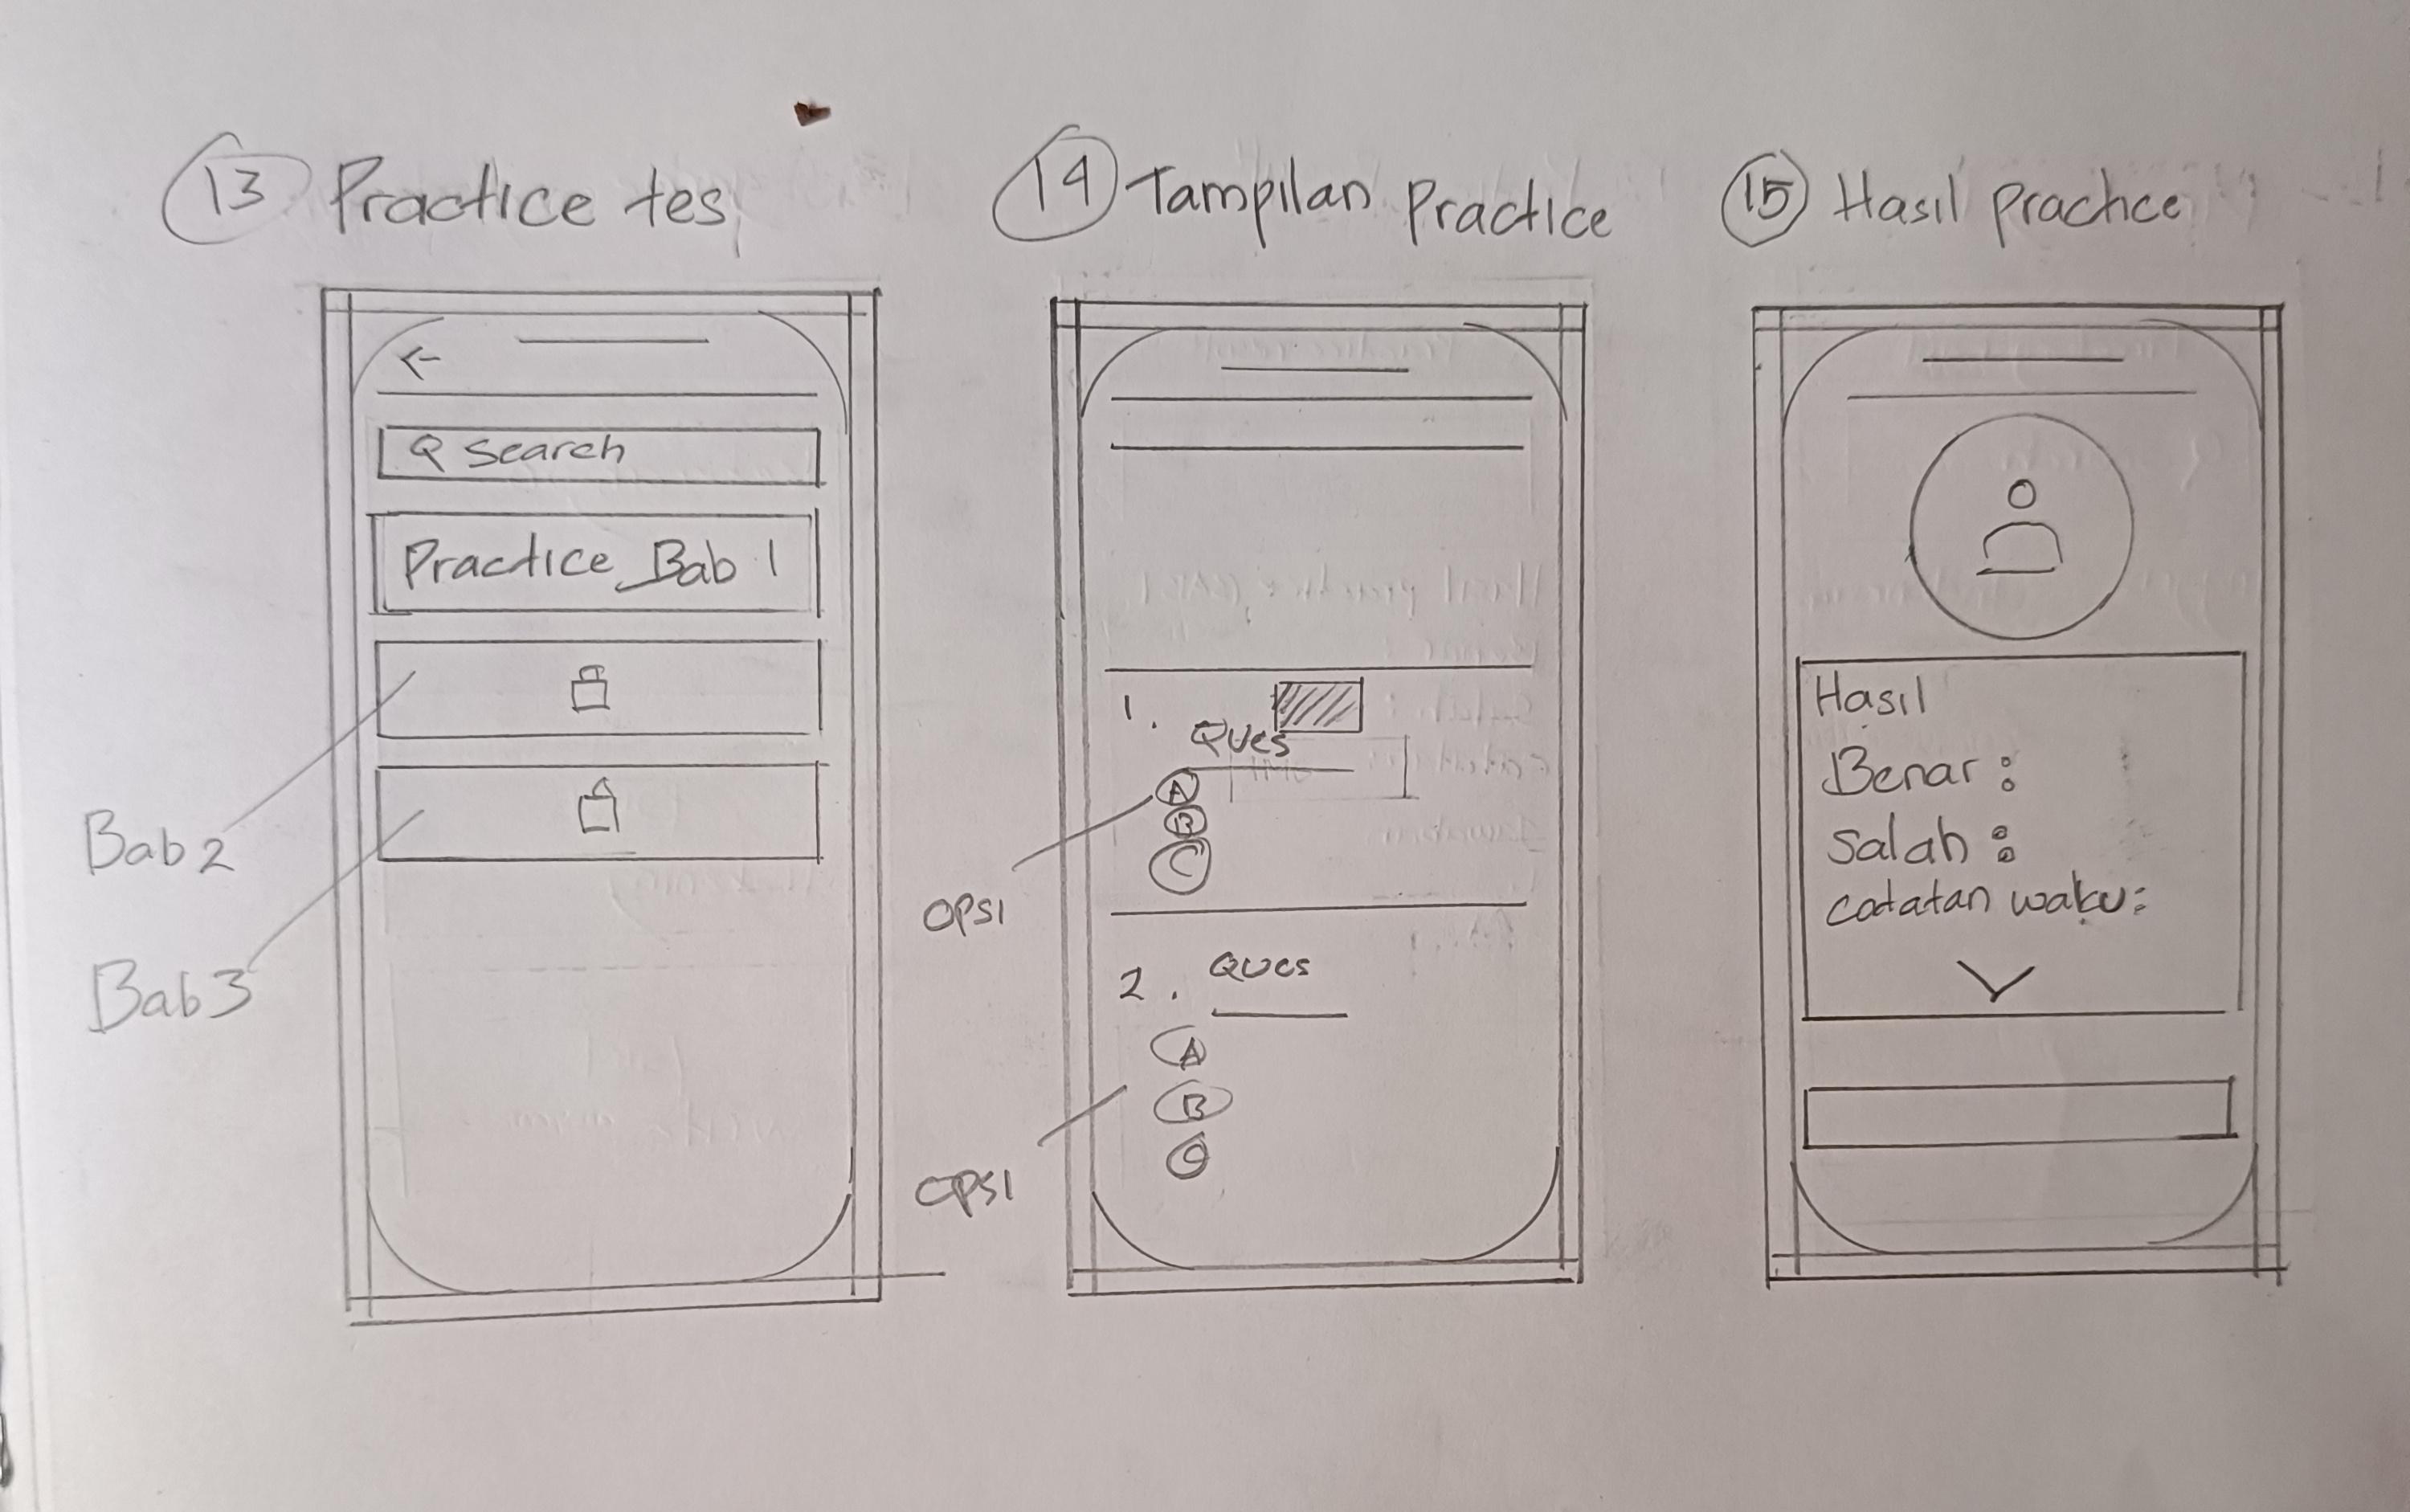 13 Practice tes
Search
Practice Bab 1
Bab 2
Bab 3
14 Tampilan Practice
1.
Ques
A
B
C
opsi
2. Ques
A
B
C
opsi
15 Hasil practice
Hasil
Benar :
Salah :
catatan waku: